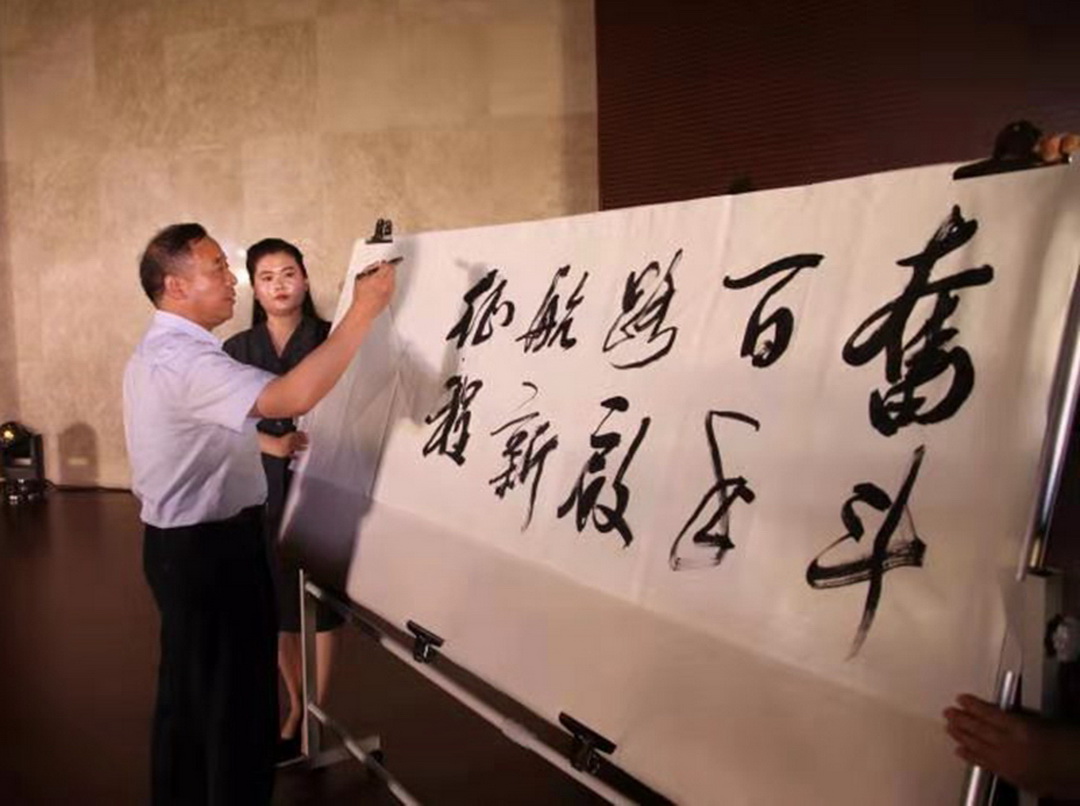 奮斗
百年
路啟
航新
征程